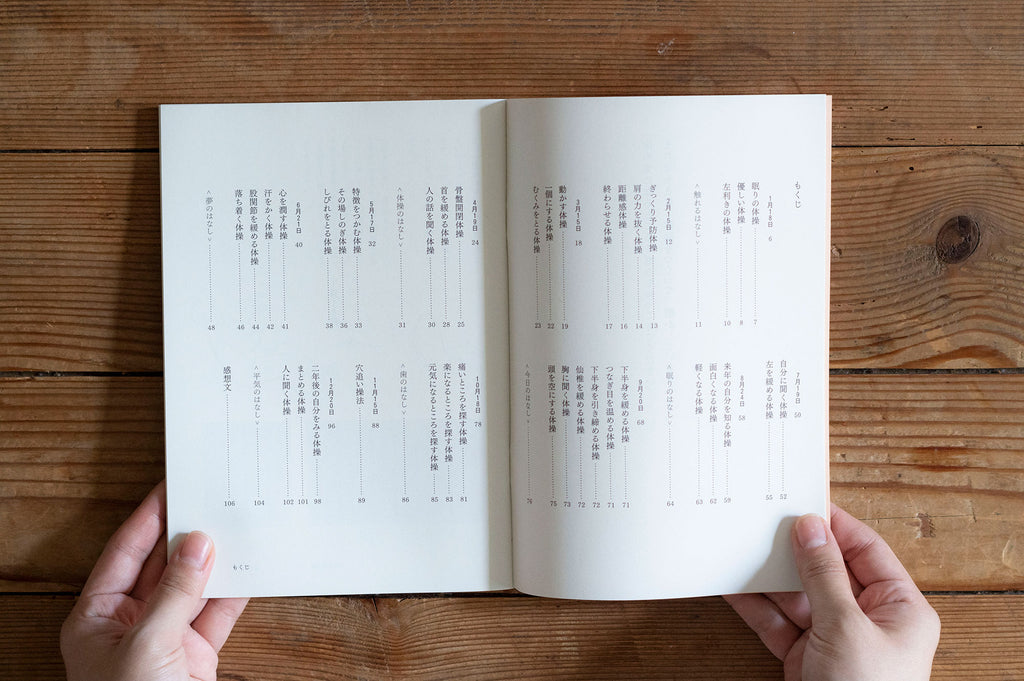 もくじ
1月18日 6
眠りの体操 7
優しい体操 8
左利きの体操 10
<触れるはなし> 11
2月15日 12
ぎっくり予防体操 13
肩の力を抜く体操 14
距離感体操 16
終わらせる体操 17
3月15日 18
動かす体操 19
一個にする体操 22
むくみをとる体操 23
4月19日 24
骨盤開閉体操 25
首を緩める体操 28
人の話を聞く体操 30
<体操のはなし> 31
5月17日 32
特徴をつかむ体操 33
その場しのぎ体操 36
しびれをとる体操 38
6月21日 40
心を潤す体操 41
汗をかく体操 42
股関節を緩める体操 44
落ち着く体操 46
<夢のはなし> 48
7月19日 50
自分に聞く体操 52
左を緩める体操 55
8月24日 58
来年の自分を知る体操 59
面白くなる体操 62
軽くなる体操 63
<眠りのはなし> 64
9月20日 68
下半身を緩める体操 71
つなぎ目を温める体操 71
下半身を引き締める体操 72
仙椎を緩める体操 72
胸に聞く体操 73
頭を空にする体操 75
<今日のはなし> 76
10月18日 78
痛いところを探す体操 81
楽になるところを探す体操 83
元気になるところを探す体操 85
<歯のはなし> 86
11月15日 88
穴追い操法 89
12月20日 96
二年後の自分をみる体操 98
まとめる体操 101
人に聞く体操 102
<平気のはなし> 104
感想文 106
もくじ